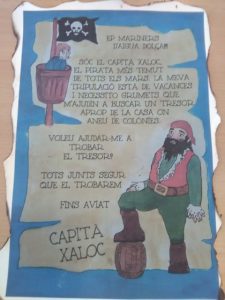 EP MARINERS
D'AIGUA DOLÇA!!!
SÓC EL CAPITÀ XALOC,
EL PIRATA MÉS TEMUT
DE TOTS ELS MARS. LA MEVA
TRIPULACIÓ ESTÀ DE VACANCES
I NECESSITO GRUMETS QUE
M'AJUDIN A BUSCAR UN TRESOR,
APROP DE LA CASA ON
ANEU DE COLÒNIES.
VOLEU AJUDAR-ME A
TROBAR
EL TRESOR?
TOTS JUNTS SEGUR
QUE EL TROBAREM
FINS AVIAT
CAPITÀ
XALOC